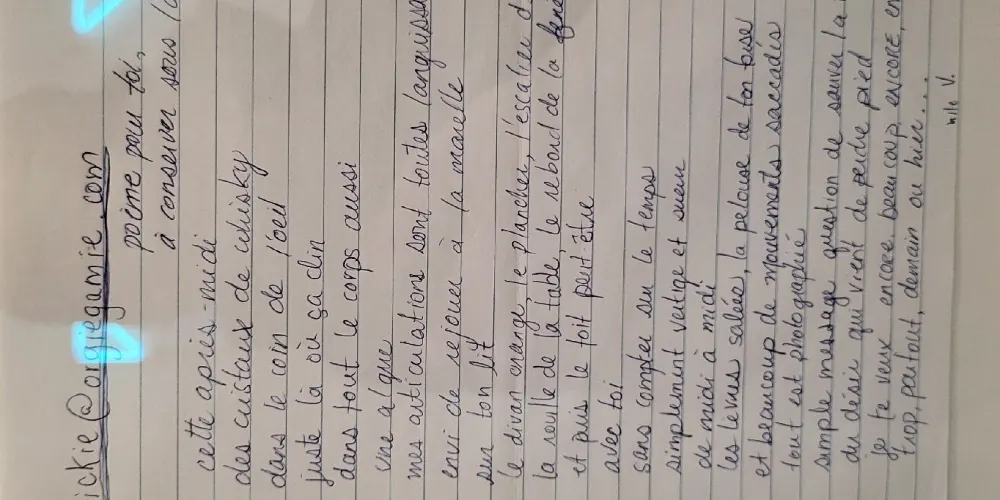 ickie@orgiegamie.com
poème pour toi,
à conserver sous
cette après-midi
des cristaux de whisky
dans le coin de l'oeil
juste là où ça din
dans tout le corps aussi
une algue
mes articulations sont toutes languissa
envi de rejouer à la marelle
sur ton lit
le divan orange, le plancher, l'escalier d
la rouille de la table, le rebord de la fenê
et puis le toit peut-être
avec toi
sans compter sur le temps
simplement vertige et sueur
de midi à midi
les lèvres salées, la pelouse de ton
et beaucoup de mouvements saccadés
tout est photographié
simple message question de sauver la
du désir qui vient de perdre pied
je te veux encore, beaucoup, encore, en
trop, partout, demain ou hier...
V.